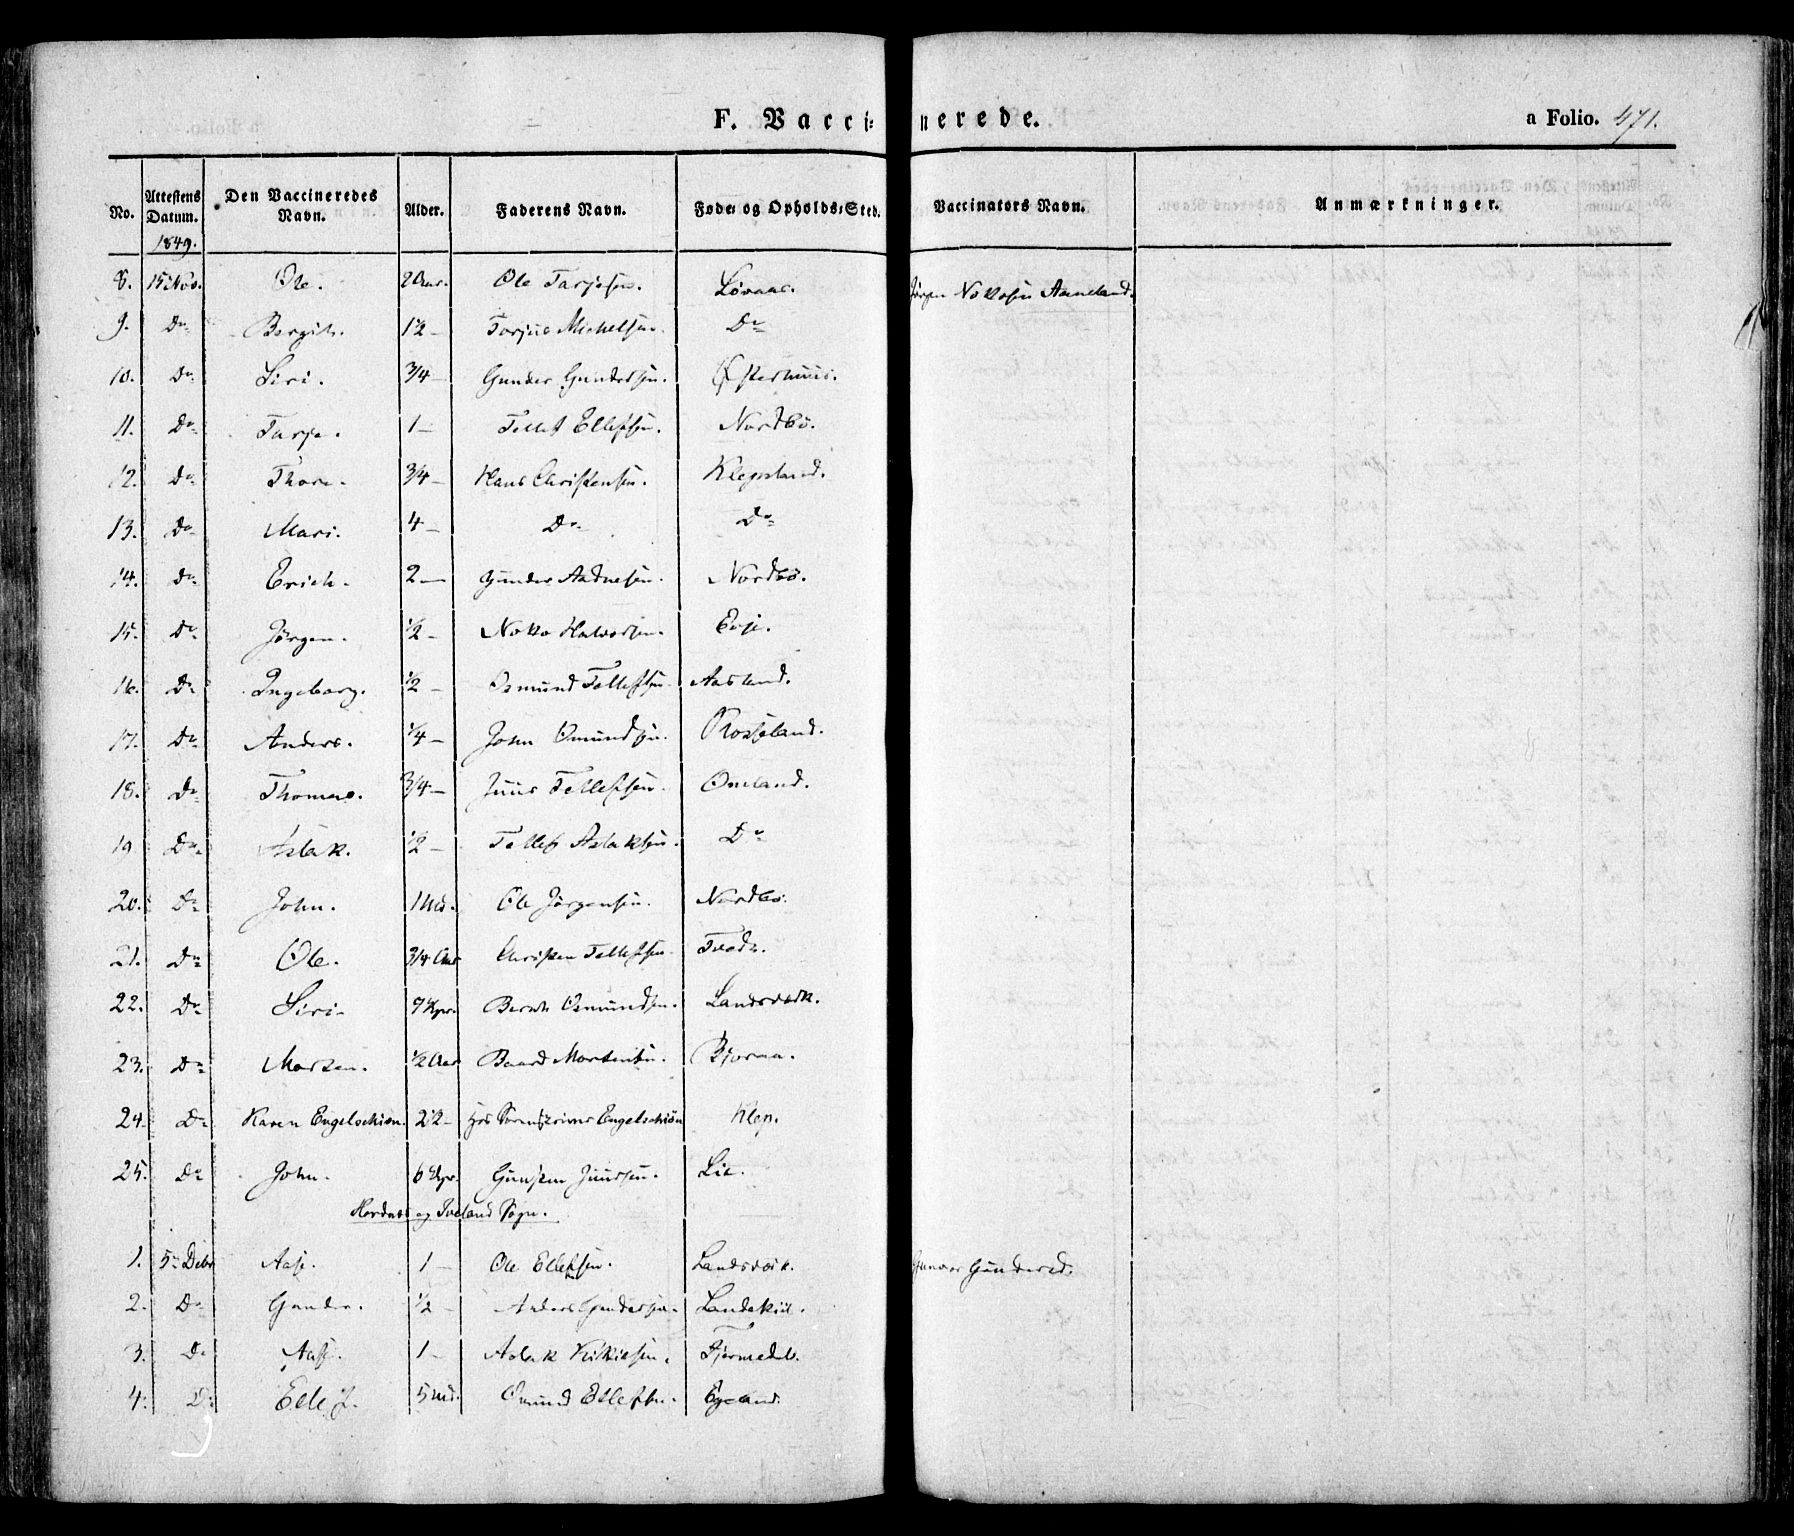 F. Vacci- nerede.
a Folio. 471.
No. Attestens Datum. 1849. Den Vaccineredes Navn. Alder. Faderens Navn. Føde- og Opholds-Sted. Vaccinators Navn. Anmærkninger.
8. 15 Nov. Ole. 2 Aar. Ole Tarjesen. Løvaas. Jørgen Nokosen Aaneland.
9. Do Bergit. 1½ – Tarjue Michelsen. Do
10. Do Siri. 3/4 – Gunder Gundersen. Østerhuus.
11. Do Tarje. 1 – Tellef Ellefsen. Nordbø.
12. Do Thore. 3/4 – Hans Christensen. Klepsland.
13. Do Mari. 4 – Do Do
14. Do Erich. 2 – Gunder Aadnesen. Nordbø.
15. Do Jørgen. ½ – Noko Halvorsen. Evje.
16. Do Ingeborg. ½ – Osmund Tellefsen Aasland.
17. Do Anders. ¼ – John Osmundsen. Rosseland.
18. Do Thomas. 3/4 – Juus Tellefsen. Omland.
19 Do Aslak. ½ – Tellef Aslaksen. Do
20. Do John. 1 Md. Ole Jørgensen. Nordbø.
21. Do Ole. 3/4 Aar Christen Tellefsen Tvede.
22. Do Siri. 9 Uger. Bernt Osmundsen. Landsværk.
23. Do Morten. ½ Aar Baard Mortensen. Bjoraa.
24. Do Karen Engelschiøn. 2½ – Hr Sorenskriver Engelschiøn Klep.
25. Do John. 6 Uger. Gunsten Juussen. Lie.
Hordnes og Iveland Sogn.
1. 5 Debr Aase. 1 – Ole Ellefsen. Landsværk. Gunder Gundersd.
2. Do Gunder. ½ – Anders Gundersen. Landskiil.
3. Do Aase. 1 – Aslak Kittilsen. Fjermedal.
4. Do Ellef. 5 Md. Osmund Ellefsen. Egeland.